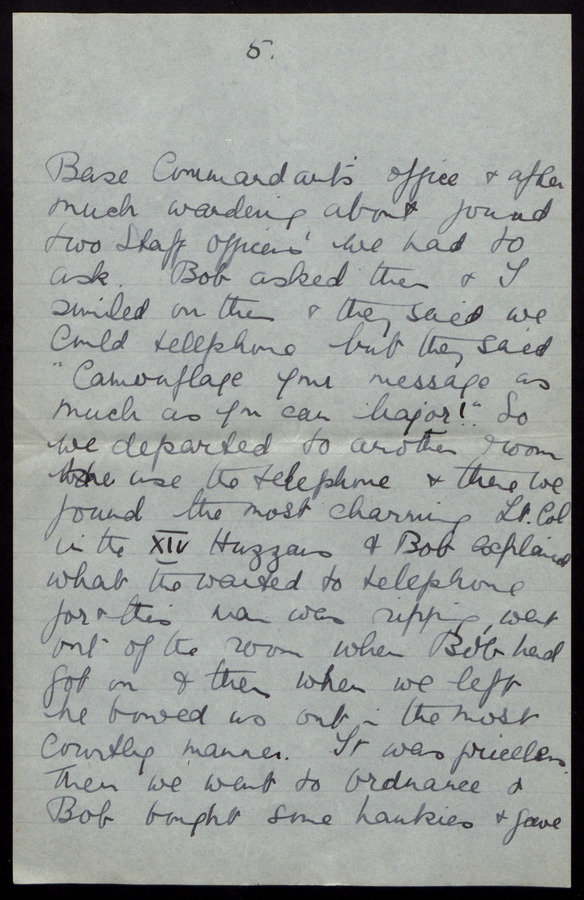 5.
Base Commandant's office & after
much wandering about found
two Staff Officers' we had to
ask. Bob asked them & I
smiled on them & they said we
Could telephone but they said
"Camouflage your message as
much as you can Major!" So
we departed to another room
to use the telephone & there we
found the most charming Lt. Col
in the XIV Huzzars & Bob explained
what he wanted to telephone
for & this man was ripping, went
out of the room when Bob had
got on & then when we left
he bowed us out in the most
Courtly manner. It was priceless.
Then we went to Ordnance &
Bob bought some hankies & gave